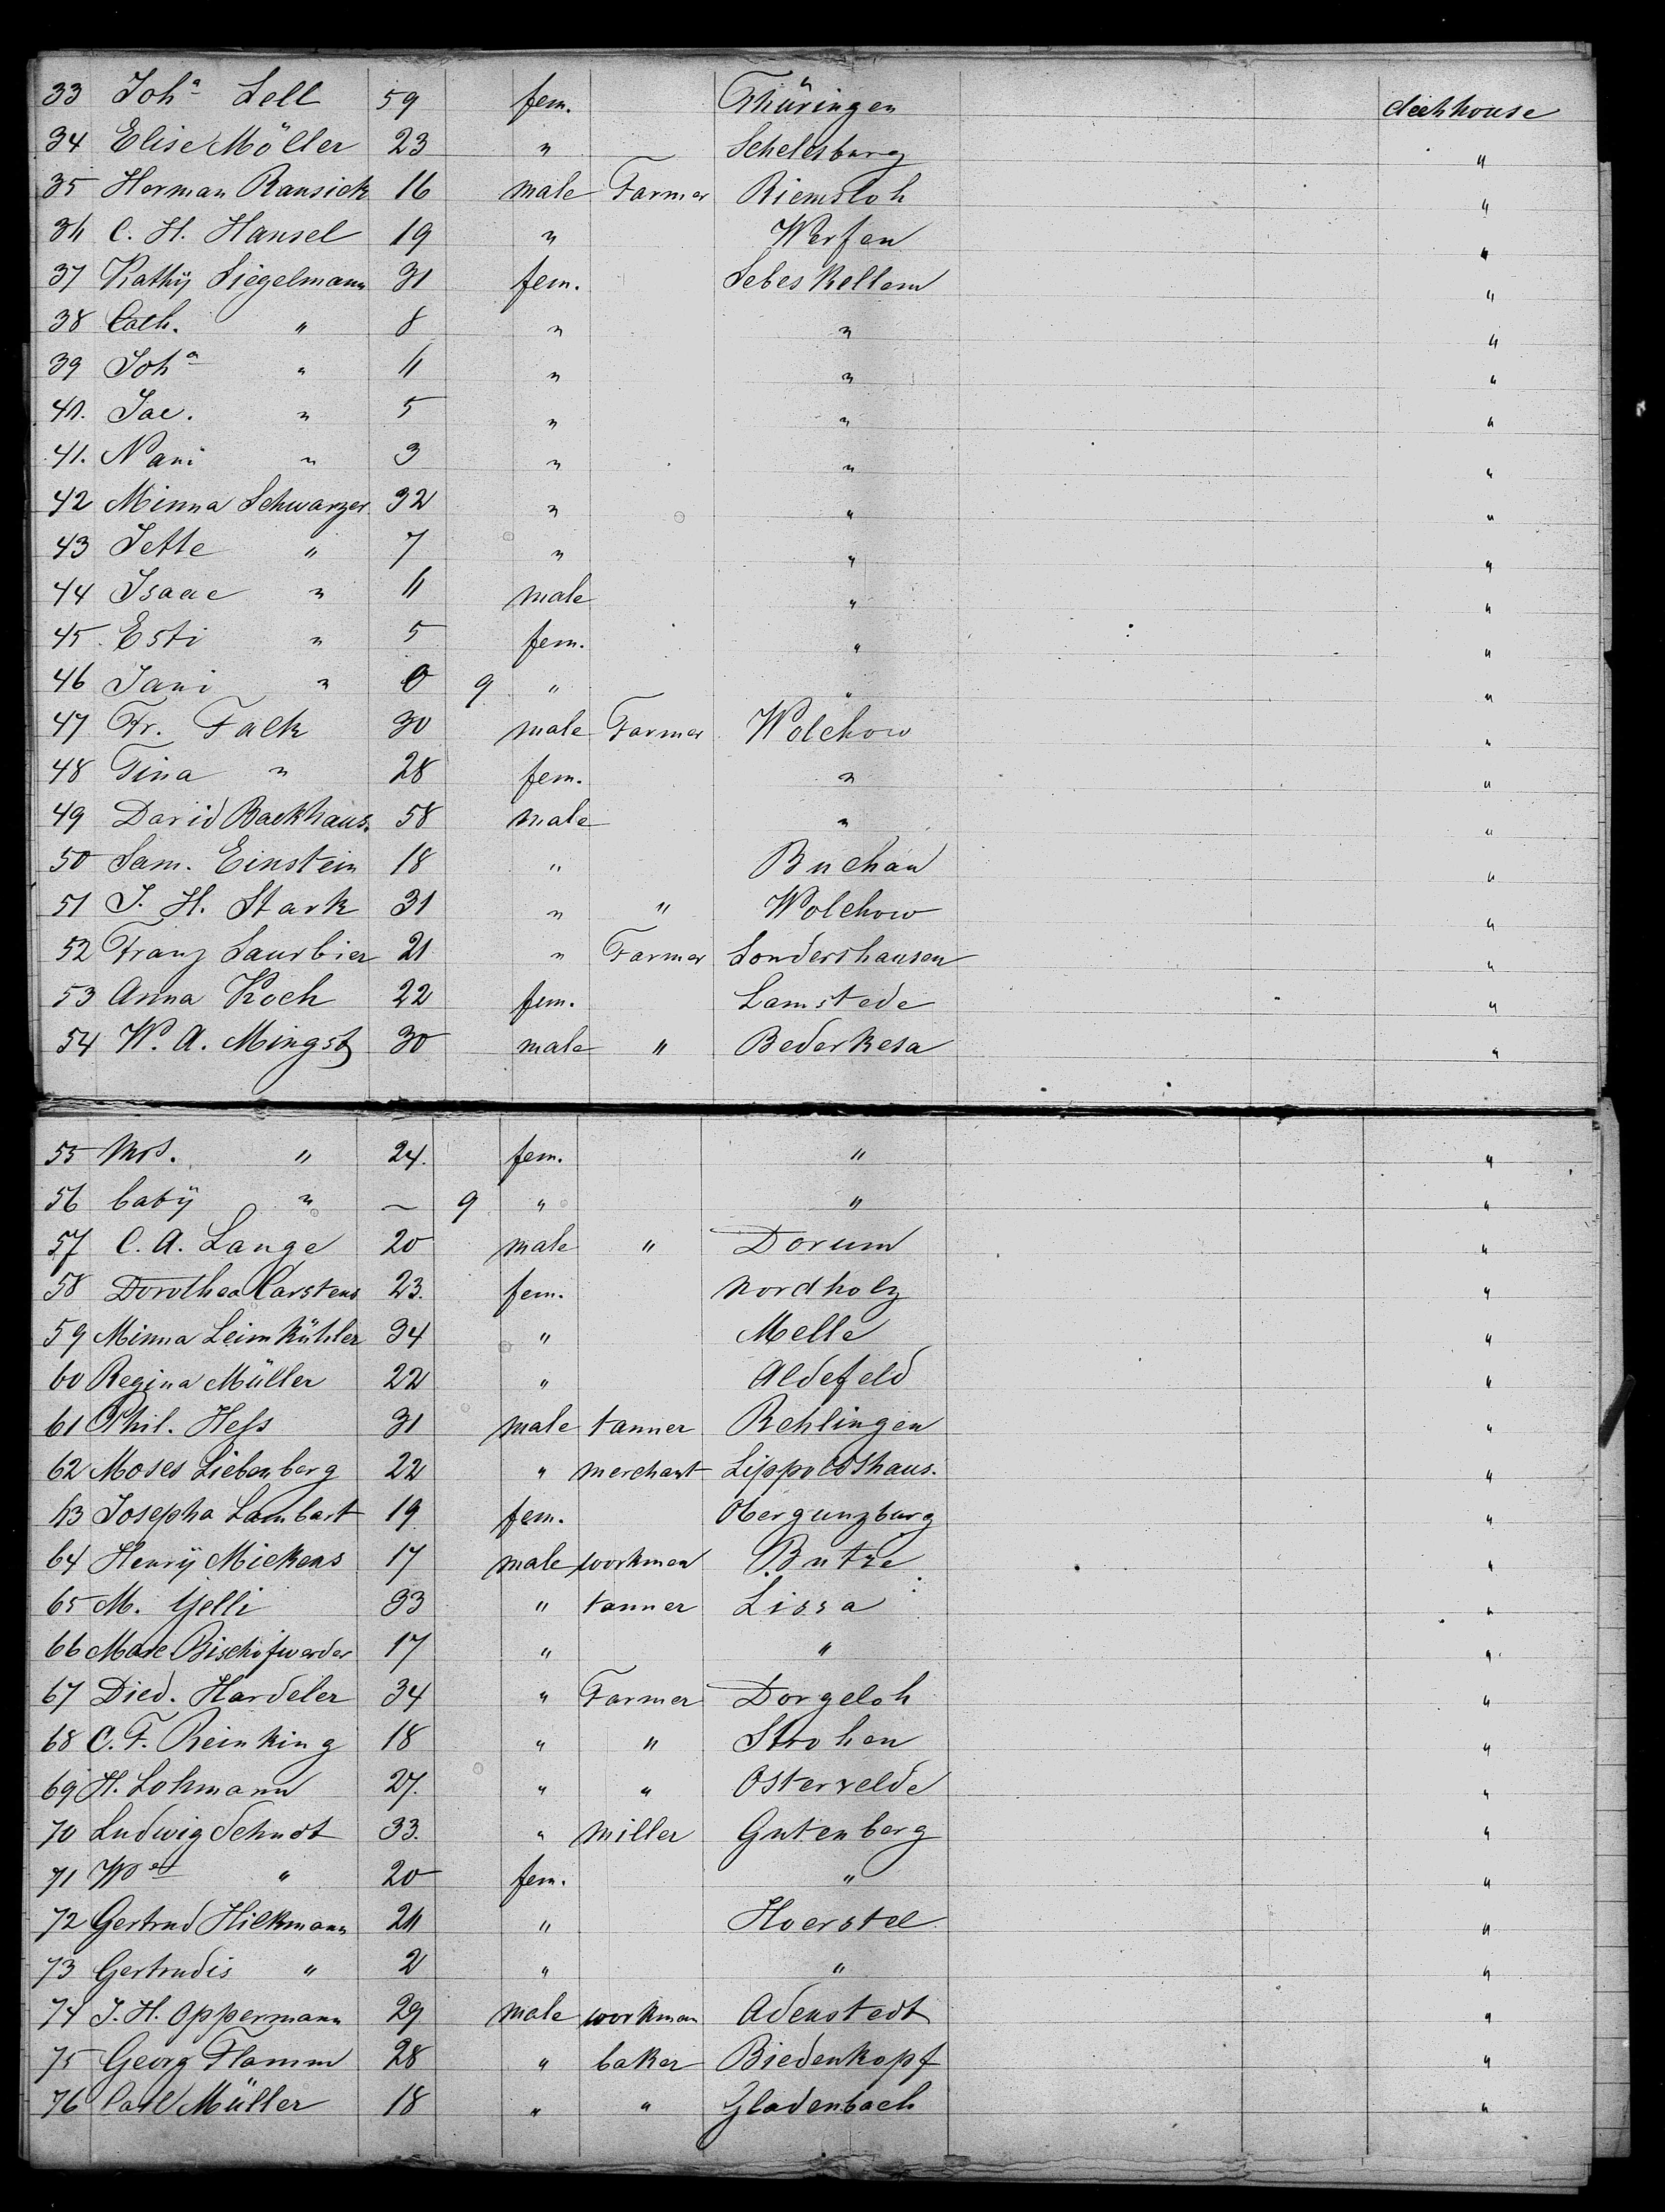 33 Joh<sup>a</sup> Sell 59 fem. Thüringen deckhouse
34 Elise Möller 23 " Schelesburg "
35 Herman Ransiek 16 male Farmer Riemsloh "
36 C. H. Hansel 19 " Werfen "
37 Kathÿ Siegelmann 31 fem. Sebes Kellem "
38 Cath. " 8 " " "
39 Joh<sup>a</sup> " 11 " " "
40. Jac. " 5 " " "
41. Nani " 3 " " "
42 Minna Schwarzer 32 " " "
43 Jette " 7 " " "
44 Isaac " 11 male " "
45. Esti " 5 fem. " "
46 Jani " 0 9 " " "
47 Fr. Falk 30 male Farmer Wolchow "
48 Tina " 28 fem. " "
49 David Backhaus. 58 male " "
50 Sam. Einstein 18 " Buchau "
51 J. H. Stark 31 " " Wolchow "
52 Franz Saurbier 21 " Farmer Sondershausen "
53 Anna Koch 22 fem. Lamstede "
54 W. A. Mingst 30 male " Bederkesa "
55 Mrs. " 24. fem. " "
56 babÿ " – 9 " " "
57 C. A. Lange 20 male " Dorum "
58 Dorothea Carstens 23. fem. Nordholz "
59 Minna Leimkühler 34 " Melle "
60 Regina Müller 22 " Aldefeld "
61 Phil. Hess 31 male tanner Rehlingen "
62 Moses Liebenberg 22 " merchant Lippoldshaus. "
63 Josepha Lambart 19 fem. Obergunzburg "
64 Henrÿ Mickens 17 male workman Butze "
65 M. Yelli 33 " tanner Lissa "
66 Mare Bischofwerder 17 " " "
67 Died. Hardeler 34 " Farmer Dorgeloh "
68 C. F. Reinking 18 " " Strohen "
69 H. Lohmann 27. " " Ostervelde "
70 Ludwig Schudt 33. " Miller Gutenberg "
71 " 20 fem. " "
72 Gertrud Hilkmann 24 " Hoerstel "
73 Gertrudis " 2 " " "
74 J. H. Oppermann 29 male workman Adenstedt "
75 Georg Flamm 28 " baker Biedenkopf "
76 Carl Müller 18 " " Gladenbach "